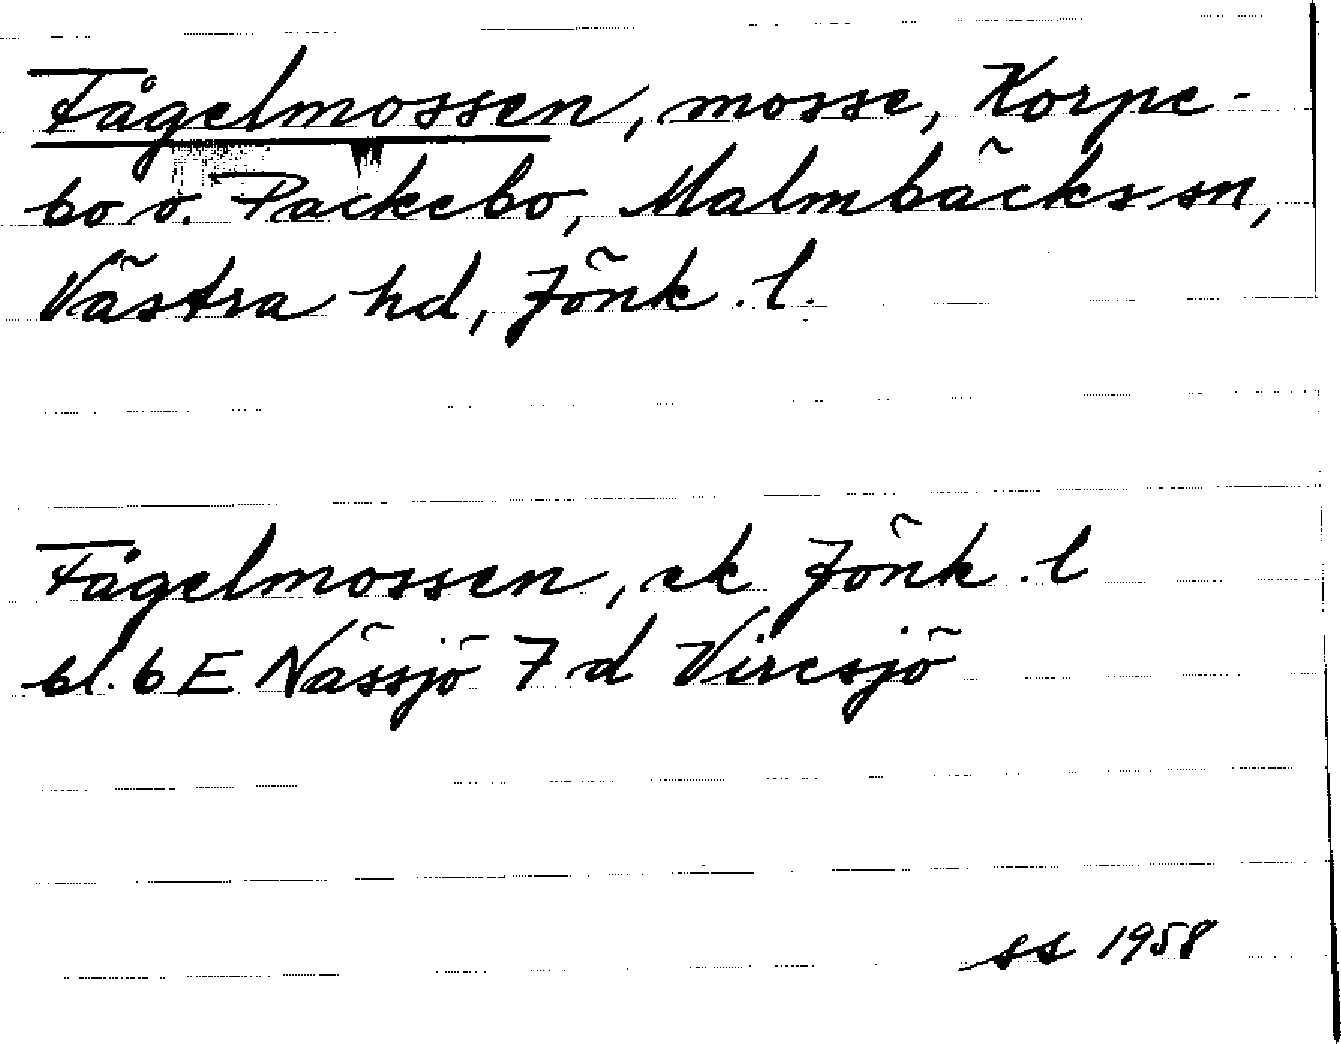 Fågelmossen, mosse, Korpe-
bo o. Packebo, Malmbäcks sn,
Västra hd, Jönk. l.
Fågelmossen, ek Jönk. l
bl. 6 E Nässjö 7 d Viresjö
ss 1958